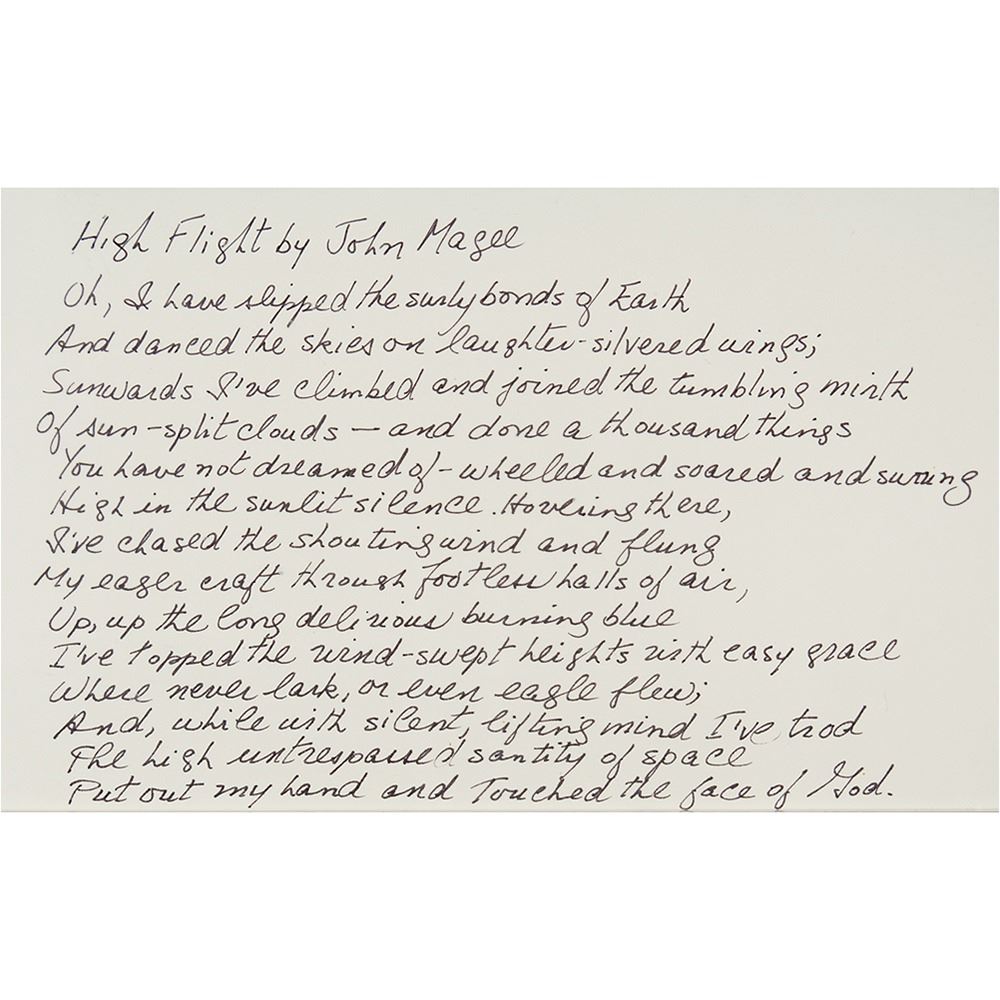 High Flight by John Magee
Oh, I have slipped the surly bonds of Earth
And danced the skies on laughter-silvered wings;
Sunwards I've climbed and joined the tumbling mirth
Of sun-split clouds — and done a thousand things
You have not dreamed of - wheeled and soared and swung
High in the sunlit silence. Hovering there,
I've chased the shouting wind and flung
My eager craft through footless halls of air,
Up, up the long delirious burning blue
I've topped the wind-swept heights with easy grace
Where never lark, or even eagle flew;
And, while with silent, lifting mind I've trod
The high untrespassed santity of space
Put out my hand and Touched the face of God.